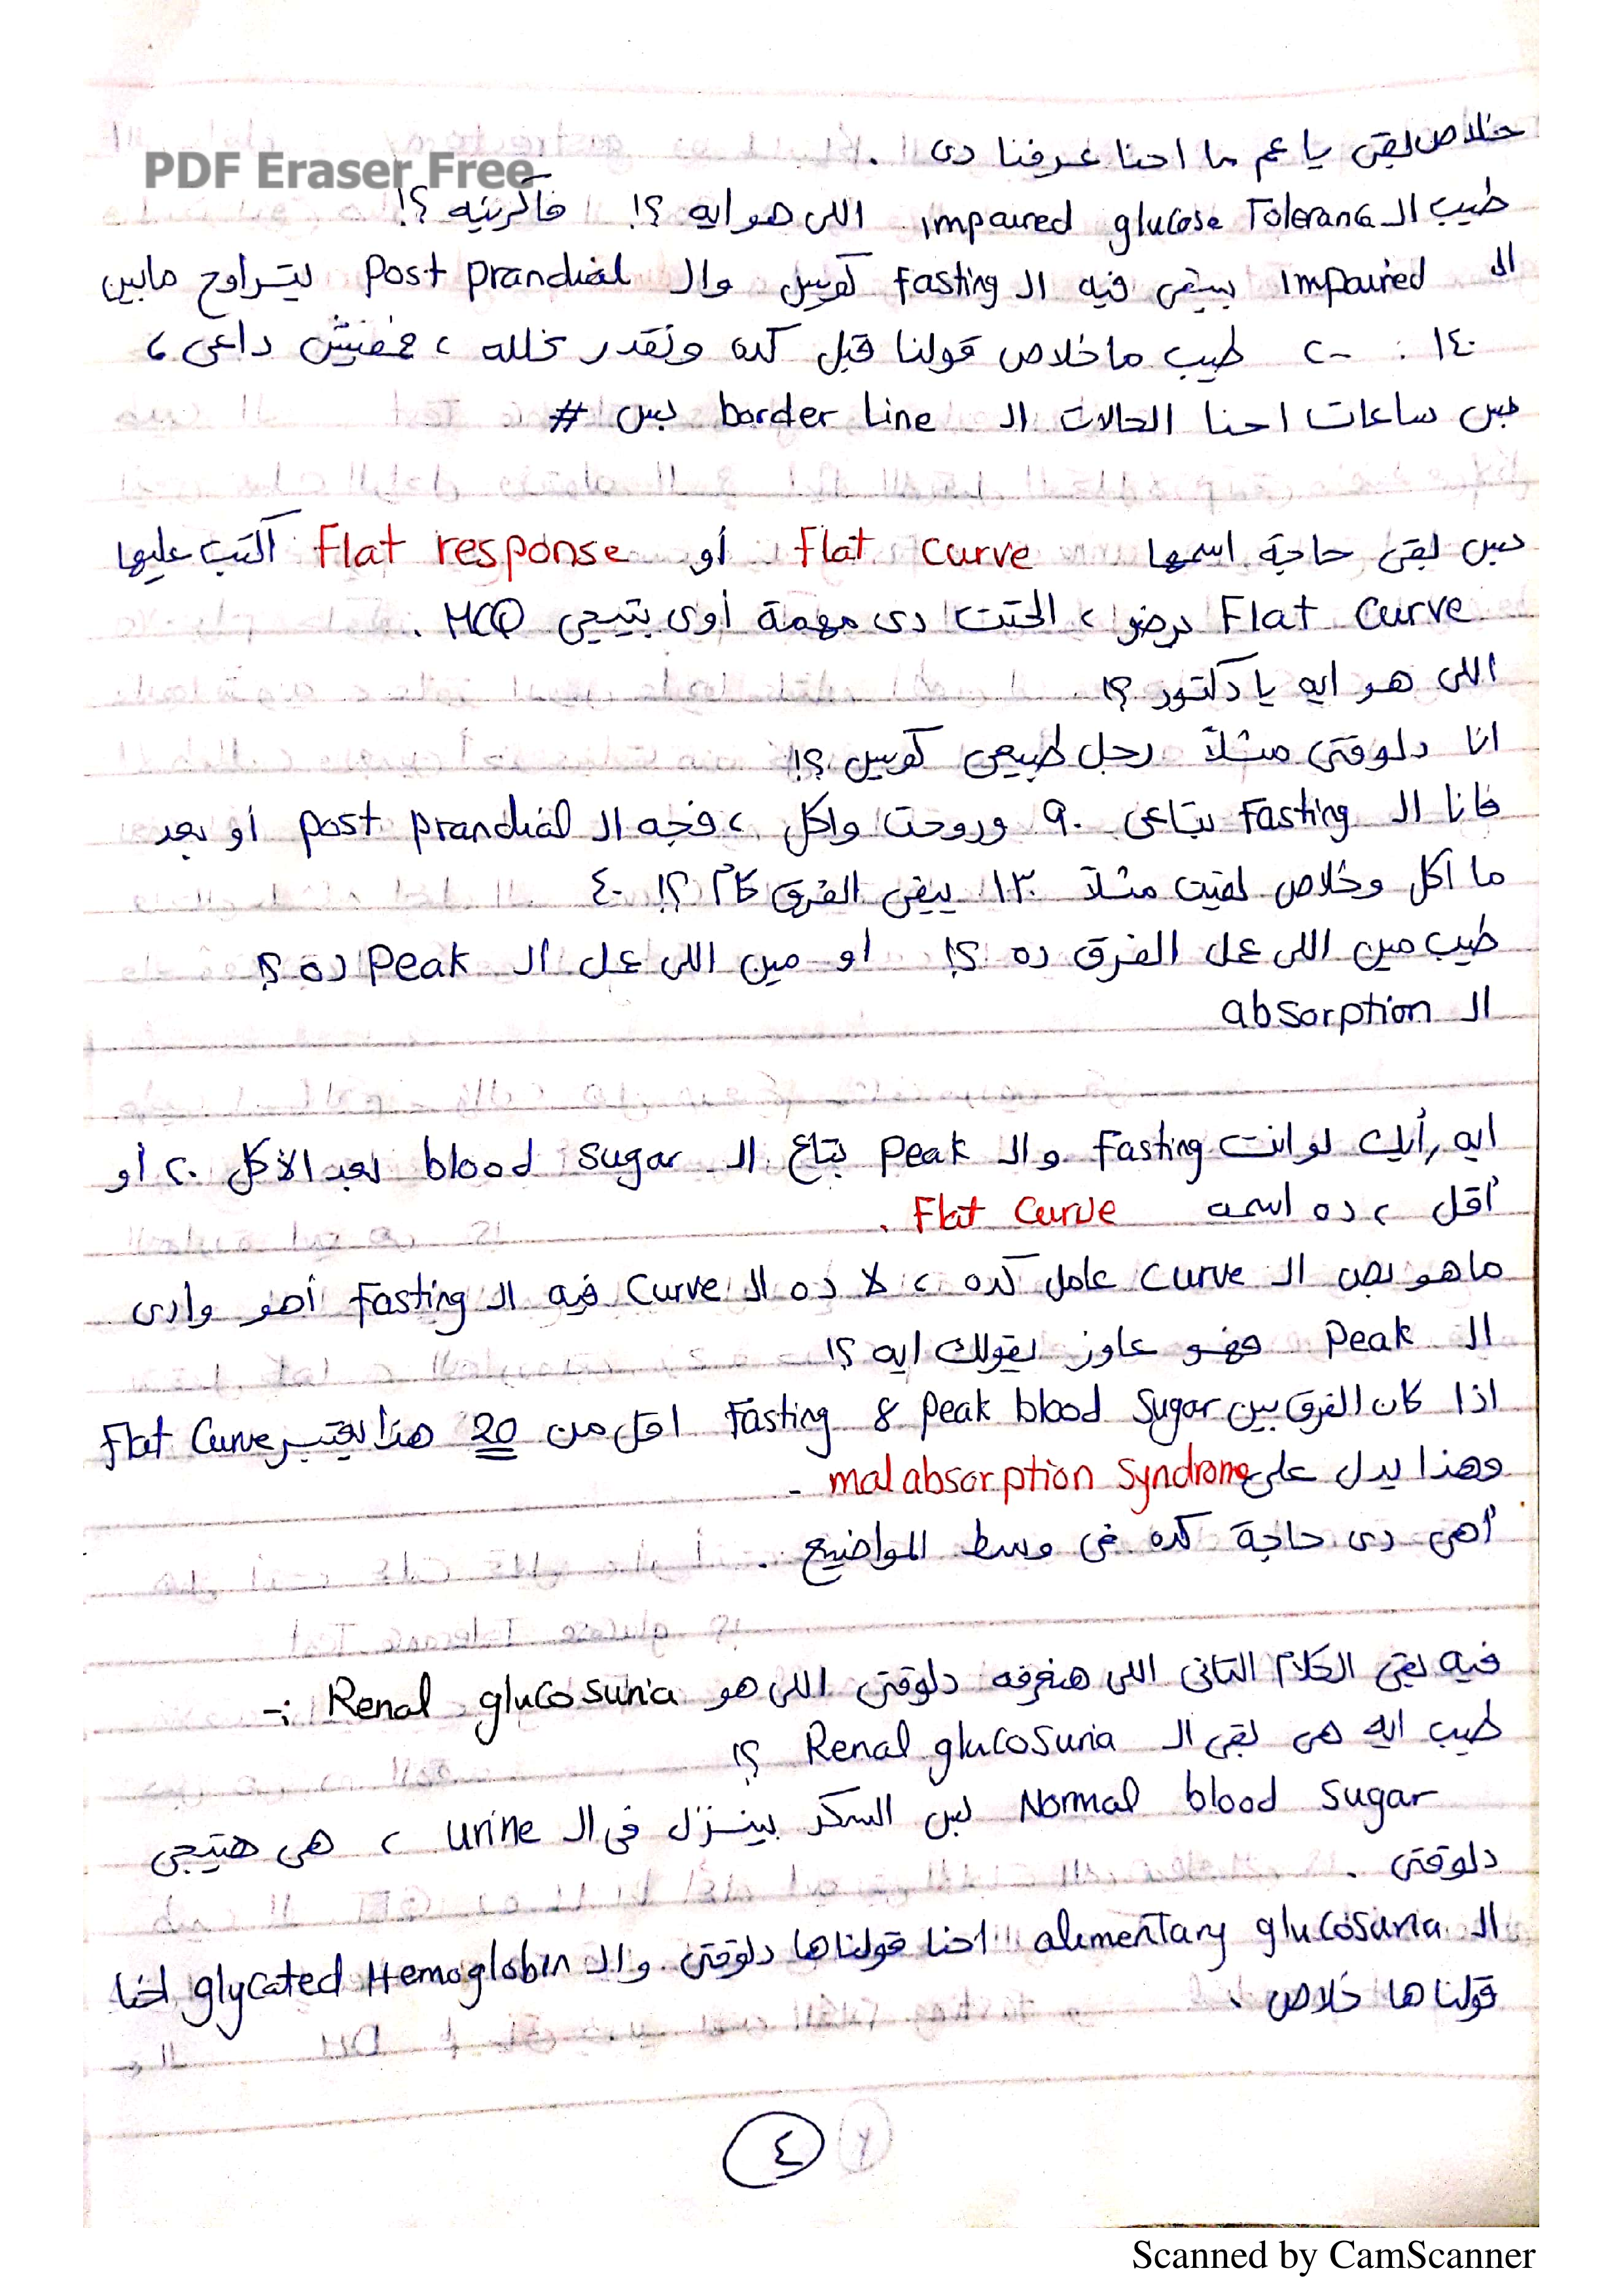 خلاص بقى يا عم ما احنا عرفنا دى .
PDF Eraser Free
طيب الـ impaired glucose Tolerance اللى هو ايه ؟! فاكرينه ؟!
الـ Impaired بيبقى فيه الـ Fasting كويس والـ Post Prandial بيتراوح مابين
١٤٠ : ٢٠٠ طيب ما خلاص قولنا قبل كده ونقدر نحلله ، فمفيش داعى ،
بس ساعات احنا الحالات الـ border line بس #
بس بقى حاجة اسمها Flat curve أو Flat response اكتب عليها
Flat Curve برضو ، الحتت دى مهمة أوى بتيجى MCQ .
اللى هو ايه يا دكتور ؟!
انا دلوقتى مثلاً رجل طبيعى كويس ؟!
فانا الـ Fasting بتاعى ٩٠ وروحت واكل ، فجه الـ post prandial أو بعد
ما آكل وخلاص لقيت مثلاً ١٣٠ يبقى الفرق كام ؟! ٤٠
طيب مين اللى عمل الفرق ده ؟! او مين اللى عمل الـ Peak ده ؟!
الـ absorption
ايه رأيك لو انت Fasting والـ Peak بتاع الـ blood sugar بعد الأكل ٢٠ أو
أقل ، ده اسمه Flat Curve .
ما هو بص الـ curve عامل كده ، لا ده الـ Curve فيه الـ Fasting أهو وادى
الـ Peak فهو عاوز يقولك ايه ؟!
اذا كان الفرق بين Fasting & Peak blood Sugar اقل من 20 هذا يعتبر Flat Curve
وهذا يدل على malabsorption Syndrome -
أهى دى حاجة كده فى وسط المواضيع .
فيه بقى الكلام التانى اللى هنعرفه دلوقتى اللى هو Renal glucosuria :-
طيب ايه هى بقى الـ Renal glucosuria ؟!
Normal blood sugar بس السكر بينزل فى الـ urine ، هى هتيجى
دلوقتى .
الـ alimentary glucosuria احنا قولناها دلوقتى والـ glycated Hemoglobin احنا
قولناها خلاص .
٤
Scanned by CamScanner